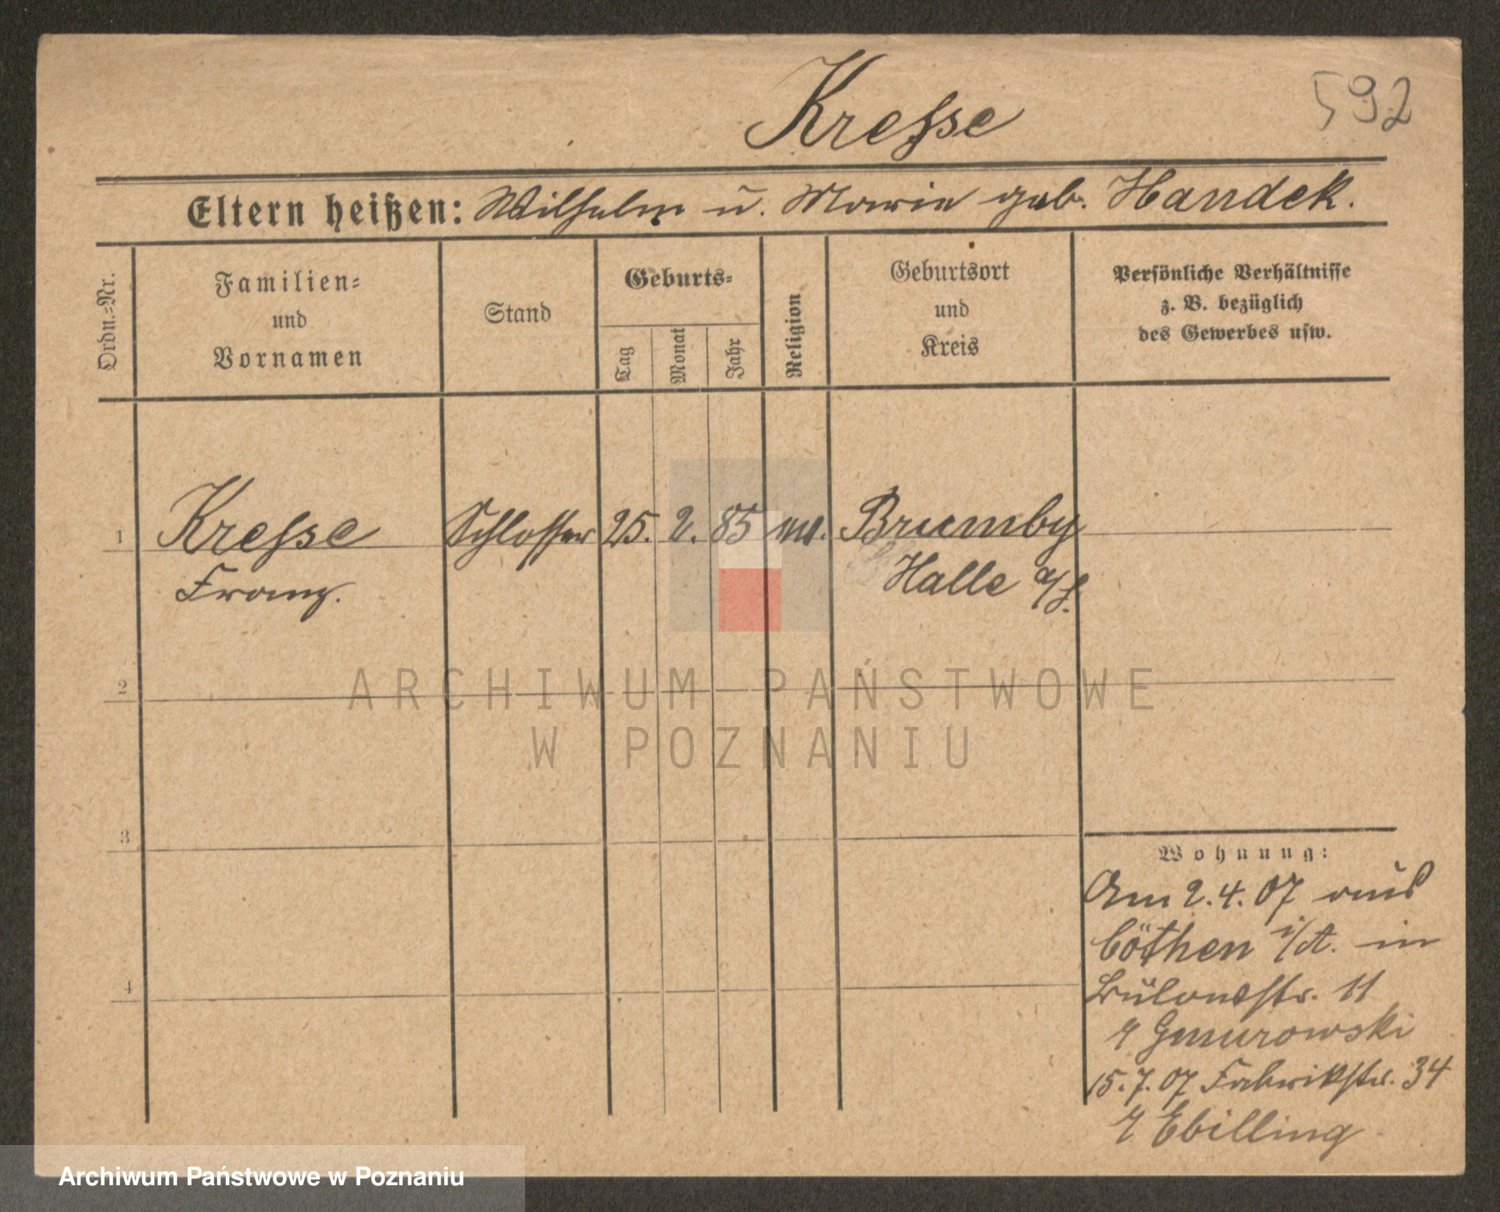 Kresse
592
Eltern heißen: Wilhelm u. Marie geb. Handek.
Ordn.-Nr.
Familien- und Vornamen
Stand
Geburts-
Tag
Monat
Jahr
Religion
Geburtsort und Kreis
Persönliche Verhältnisse z. B. bezüglich des Gewerbes usw.
1 Kresse Schlosser 25. 2. 85 Brumby
Franz. Halle a/S.
2
3
4
Wohnung:
Am 2.4.07 aus
Cöthen i/A. in
Bülowstr. 11
Gmurowski
15.7.07 Fabrikstr. 34
Ebilling
ARCHIWUM PAŃSTWOWE
W POZNANIU
Archiwum Państwowe w Poznaniu